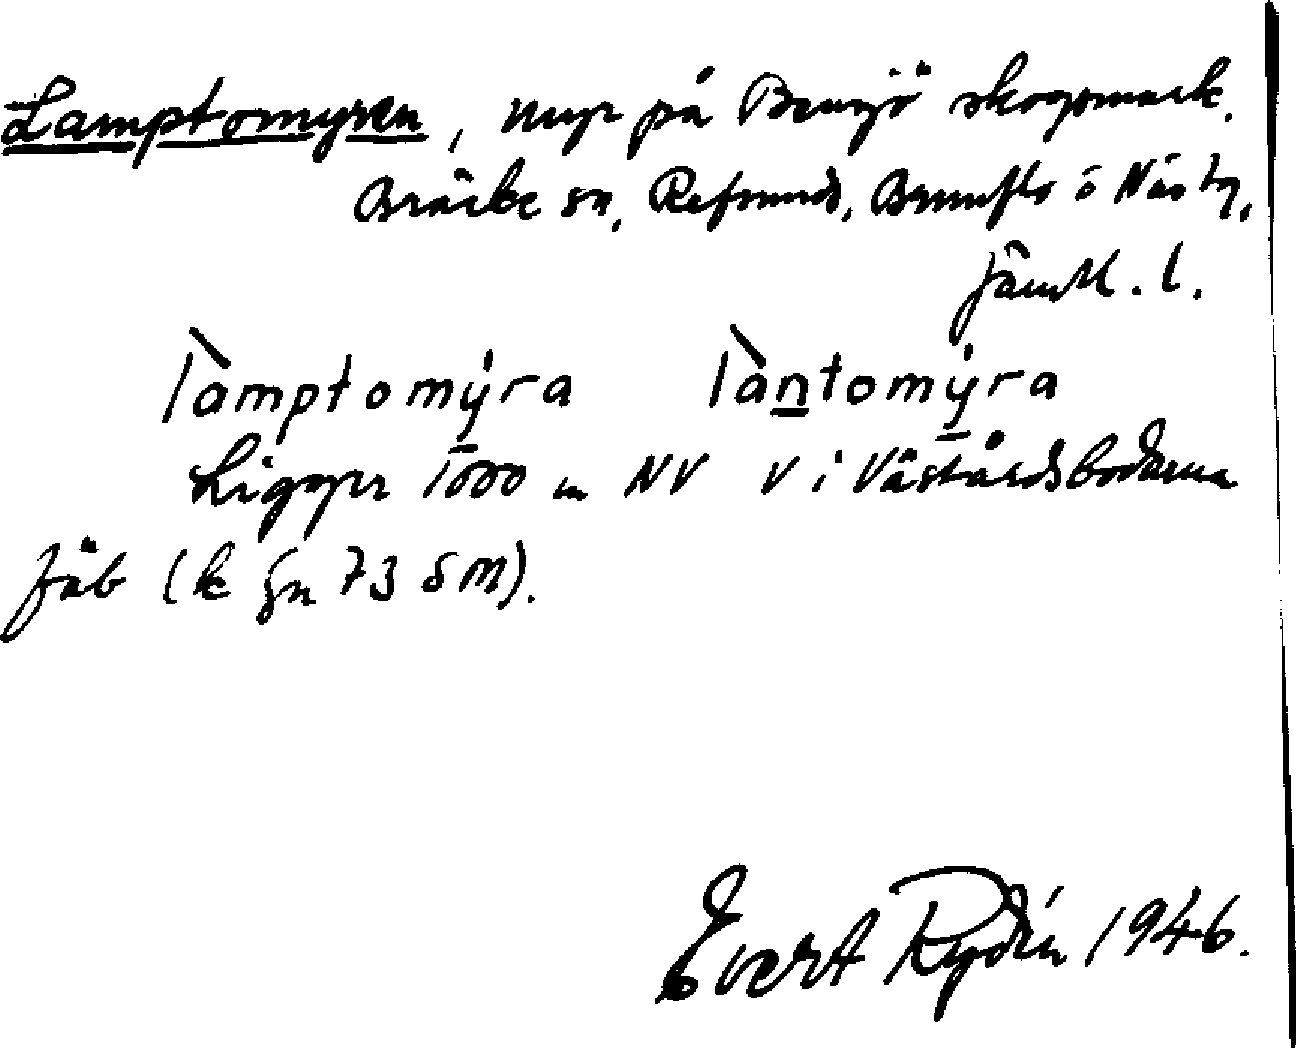 Lamptomyren, myr på Bensjö skogsmark.
Bräcke sn, Refsunds, Brunflo o Näs tg,
Jämtl. l.
làmptomýra làntomýra
Ligger 1000 m NV V i Västårdsbodarna
fäb (k gn 73 SM).
Evert Rydén 1946.